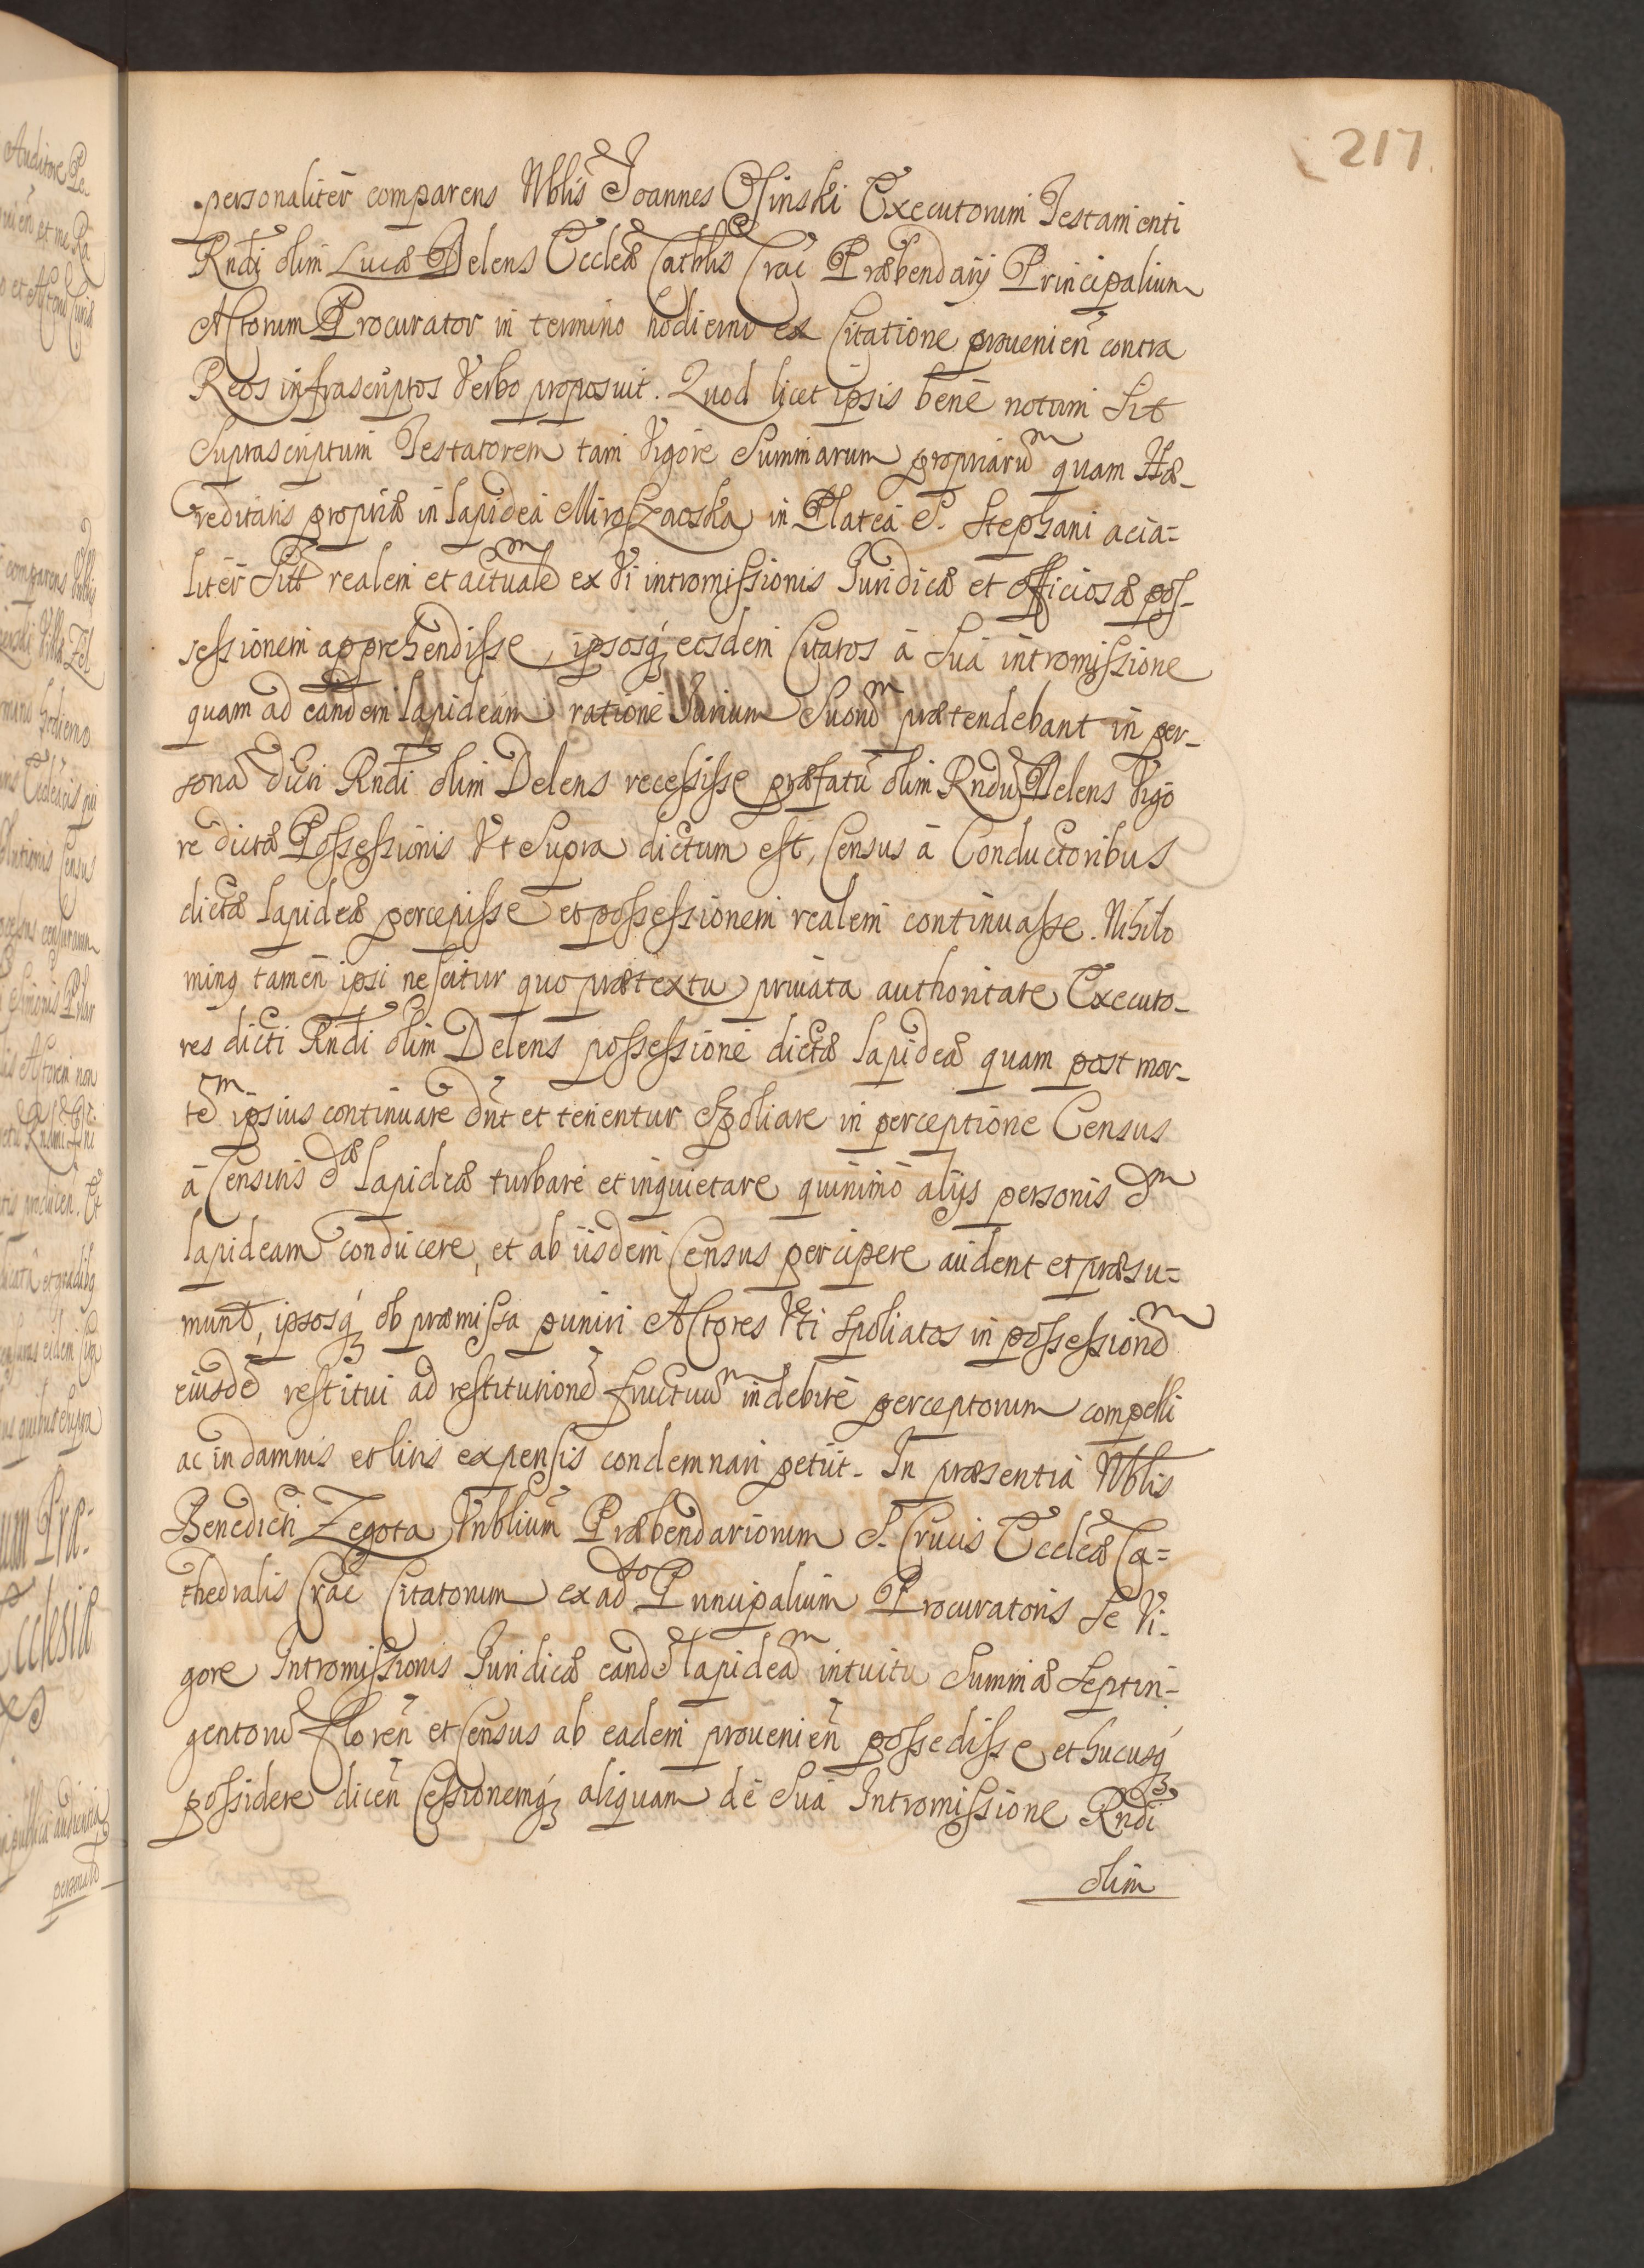 217
personaliter comparens Nblis Joannes Osinski Executorum Testamenti
Rndi olim Lucæ Delens Eccleæ Cathlis Crac Præbendarij Principalium
Actorum Procurator in termino hodierno ex Citatione prouenien contra
Reos infrascriptos Verbo proposuit. Quod licet ipsis bene notum sit
Suprascriptum Testatorem tam Vigore Summarum propriaru quam Hæ-
reditatis propriæ in lapidea Mirosz in Platea S. Stephani acia=
liter realem et actuale ex Vi intromissionis Juridicæ et officiosæ pos-
sessionem apprehendisse, ipsosq eosdem Citatos a sua intromissione
quam ad eandem lapideam ratione Jurium Suoru prætendebant in per-
sona dicti Rndi olim Delens recessisse præfatu olim Rndu Delens Vigo
re dictæ Possessionis Vt Supra dictum est, Census a Conductoribus
dictæ lapideæ percepisse et possessionem realem continuasse. Nihilo
minq tamen ipsi nescitur quo prætextu priuata authoritate Executo-
res dicti Rndi olim Delens possessione dictæ lapideæ quam post mor-
te ipsius continuare dnt et tenentur Spoliare in perceptione Census
a Censitis dæ lapideæ turbare et inquietare quinimo alijs personis dm
lapideam conducere, et ab iisdem Census percipere audent et præsu=
munt, ipsosq ob præmissa puniri Actores Vti spoliatos in possessione
eiusde restitui ad restitutione fructuu indebite perceptorum compelli
ac in damnis et litis expensis condemnari petiit. In præsentia Nblis
Benedicti Zegota Vnblium Præbendariorum S. Crucis Eccleæ Ca=
thedralis Crac Citatorum ex adso Principalium Procuratoris se Vi-
gore Intromissionis Juridicæ eande lapidea intuitu Summæ Septin-
gentoru floren et Census ab eadem prouenien possedisse et hucusq
possidere dicen Cessionemq aliquam de sua Intromissione Rndi
olim